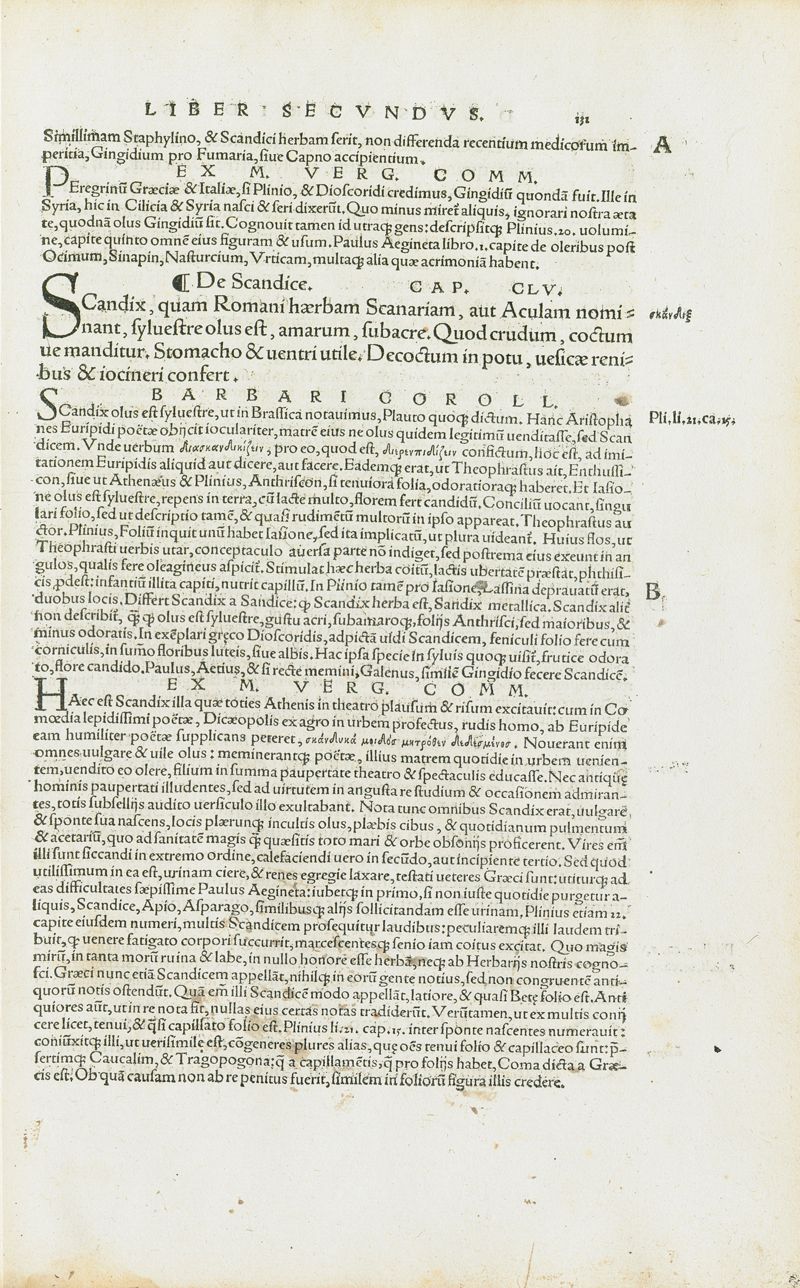 LIBER SECVNDVS.
Simillimam Staphylino, & Scandici herbam serit, non differenda recentium medicorum im-
peritia, Gingidium pro Fumaria, siue Capno accipientium.
A
EX M. VERG. COMM.
PEregrinũ Græciæ & Italiæ, si Plinio, & Dioscoridi credimus, Gingidiũ quondã fuit. Ille in
Syria, hic in Cilicia & Syria nasci & seri dixerũt. Quo minus miret᷑ aliquis, ignorari nostra æta
te, quodnã olus Gingidiũ sit. Cognouit tamen id utraq; gens: descripsitq; Plinius .20. uolumi-
ne, capite quinto omnẽ eius figuram & usum. Paulus Aegineta libro .1. capite de oleribus post
Ocimum, Sinapin, Nasturcium, Vrticam, multaq; alia quæ acrimoniã habent.
¶ De Scandice. CAP. CLV.
SCandix, quam Romani hærbam Scanariam, aut Aculam nomi-
nant, syluestre olus est, amarum, subacre. Quod crudum, coctum
ue manditur. Stomacho & uentri utile. Decoctum in potu, uesicæ reni-
bus & iocineri confert.
σκάνδιξ
BARBARI COROLL.
SCandix olus est syluestre, ut in Brassica notauimus, Plauto quoq; dictum. Hanc Aristopha
nes Euripidi poëtæ obijcit ioculariter, matrẽ eius ne olus quidem legitimũ uenditasse, sed Scan
dicem. Vnde uerbum διασκανδικίζων, pro eo, quod est, confictum, hoc est, ad imi-
tationem Euripidis aliquid aut dicere, aut facere. Eademq; erat, ut Theophrastus ait, Enthusi-
con, siue ut Athenæus & Plinius, Anthriscon, si tenuiora folia, odoratioraq; haberet. Et Iasio-
ne olus est syluestre, repens in terra, cũ lacte multo, florem fert candidũ. Conciliũ uocant, singu
lari folio, sed ut descriptio tamẽ, & quasi rudimẽtũ multorũ in ipso appareat. Theophrastus au
ctor. Plinius, Foliũ inquit unũ habet Iasione, sed ita implicatũ, ut plura uideant᷑. Huius flos, ut
Theophrasti uerbis utar, conceptaculo auersa parte nõ indiget, sed postrema eius exeunt in an
gulos, qualis fere oleagineus aspicit᷑. Stimulat hæc herba coitũ, lactis ubertatẽ præstat, phthisi-
cis ꝓdest: infantiũ illita capiti, nutrit capillũ. In Plinio tamẽ pro Iasione, Lassina deprauatũ erat,
duobus locis. Differt Scandix a Sandice: ꝙ Scandix herba est, Sandix metallica. Scandix aliẽ
non describit᷑, ꝙ̃ ꝙ olus est syluestre, gustu acri, subamaroq;, folijs Anthrisci, sed maioribus, &
minus odoratis. In exẽplari gręco Dioscoridis, adpictã uidi Scandicem, feniculi folio fere cum
corniculis, in sumo floribus luteis, siue albis. Hac ipsa specie in syluis quoq; uisit᷑, frutice odora
to, flore candido. Paulus, Aetius, & si recte memini, Galenus, similẽ Gingidio fecere Scandicẽ.
Pli, li, 21, ca, 15,
B
EX M. VERG. COMM.
HAec est Scandix illa quæ toties Athenis in theatro plausum & risum excitauit: cum in Co
mœdia lepidissimi poëtæ, Dicæopolis ex agro in urbem profectus, rudis homo, ab Euripide
eam humiliter poëtæ supplicans peteret, σκάνδικά μοι δὸς μητρόθεν δεδεγμένος. Nouerant enim
omnes uulgare & uile olus: meminerantq; poëtæ, illius matrem quotidie in urbem uenien-
tem, uendito eo olere, filium in summa paupertate theatro & spectaculis educasse. Nec antiquę
hominis paupertati illudentes, sed ad uirtutem in angusta re studium & occasionem admiran-
tes, totis subsellijs audito uersiculo illo exultabant. Nota tunc omnibus Scandix erat, uulgarẽ,
& sponte sua nascens, locis plærunq; incultis olus, plæbis cibus, & quotidianum pulmentum
& acetariũ, quo ad sanitatẽ magis ꝙ̃ quæsitis toto mari & orbe obsonijs proficerent. Vires em̃
illi sunt siccandi in extremo ordine, calefaciendi uero in secũdo, aut incipiente tertio. Sed quod
utilissimum in ea est, urinam ciere, & renes egregie laxare, testati ueteres Græci sunt: utiturq; ad
eas difficultates sæpissime Paulus Aegineta: iubetq; in primo, si non iuste quotidie purgetur a-
liquis, Scandice, Apio, Asparago, similibusq; alijs sollicitandam esse urinam. Plinius etiam 22.
capite eiusdem numeri, multis Scandicem prosequitur laudibus: peculiaremq; illi laudem tri-
buit, ꝙ uenere fatigato corpori succurrit, marcescentesq; senio iam coitus excitat. Quo magis
mirũ, in tanta morũ ruina & labe, in nullo honore esse herbã, neq; ab Herbarijs nostris cogno-
sci. Græci nunc etiã Scandicem appellãt, nihilq; in eorũ gente notius, sed non congruente anti-
quorũ notis ostendũt. Quã em̃ illi Scandicẽ modo appellãt, latiore, & quasi Betę folio est. Anti
quiores aũt, ut in re nota fit, nullas eius certas notas tradiderũt. Verũtamen, ut ex multis conij
cere licet, tenui, & q̃si capillato folio est. Plinius li. 21. cap. 15. inter sponte nascentes numerauit:
coniũxitq; illi, ut uerisimile est, cõgeneres plures alias, quę oẽs tenui folio & capillaceo sunt: p̃-
sertimq; Caucalim, & Tragopogona: q̃ a capillamẽtis, q̃ pro folijs habet, Coma dicta a Græ-
cis est. Ob quã causam non ab re penitus fuerit, similem in foliorũ figura illis credere.